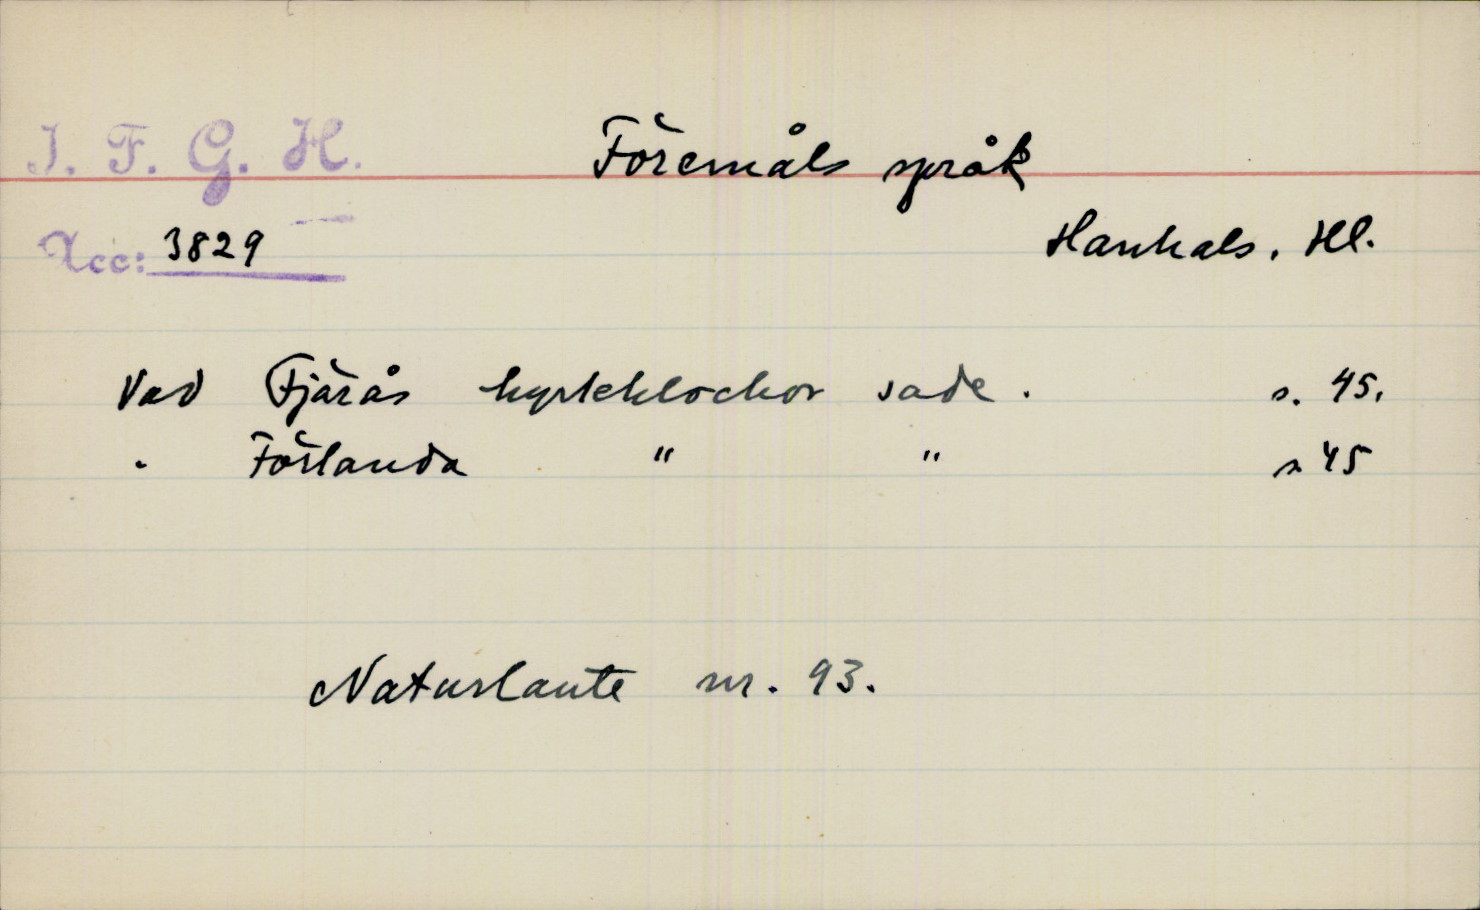 I. F. G. H.
Föremåls språk
Acc: 3829
Hanhals, Hl.
Vad Fjärås kyrkklockor sade. s. 45.
" Förlanda " " s. 45
Naturlaute nr. 93.